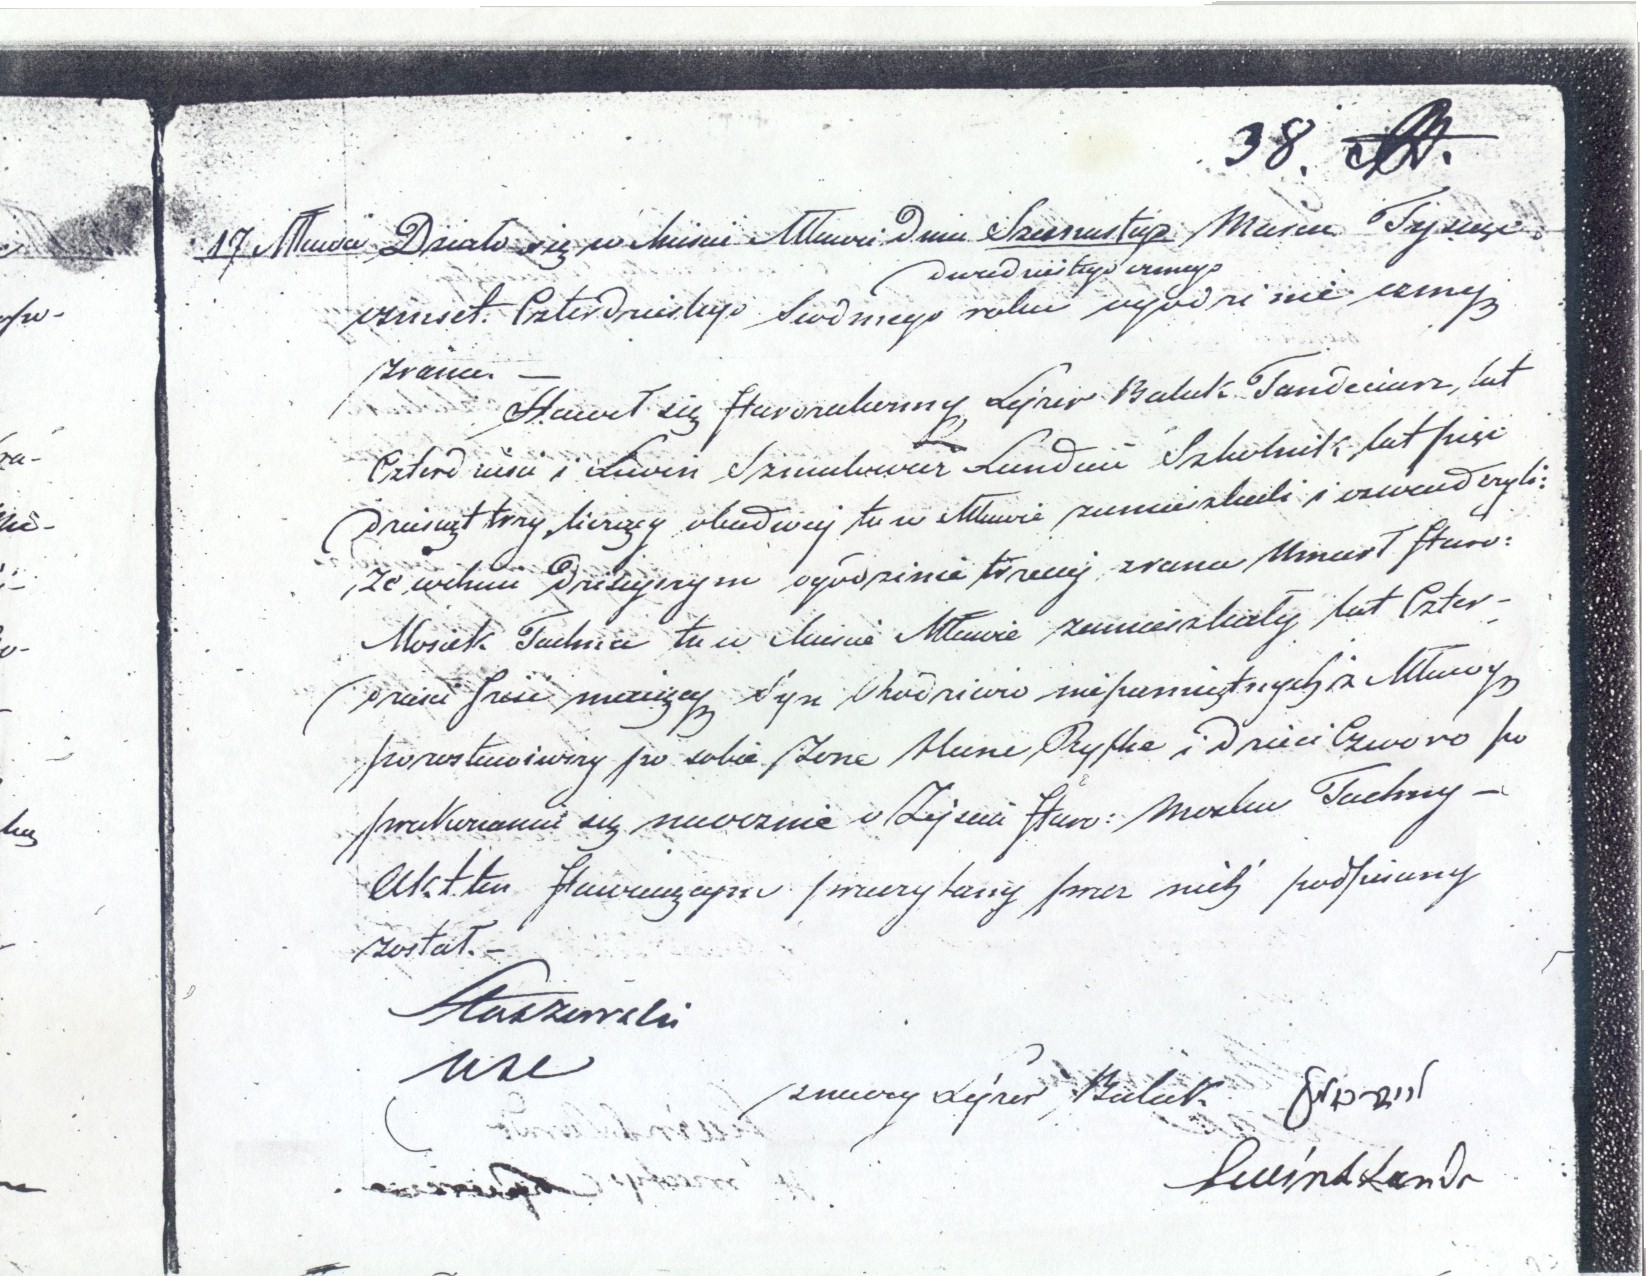 38.
17 Mława Działo się w Mieście Mławie Dnia Szesnastego Marca Tysiąc
dwudziestego osmego
osmset. Czterdziestego Siodmego roku o godzinie osmej
zrana. —
Stawił się Starozakonny Lejzer Bialik Tandeciarz, lat
Czterdzieści i Lewin Szmulowicz Landau Szkolnik, lat pięć
dziesiąt trzy liczący obadwaj tu w Mławie zamieszkali i oswiadczyli:
że w dniu Dzisiejszym o godzinie trzeciej zrana Umarł Staro:
Mosiek Tachna tu w Mieście Mławie zamieszkały lat Czter-
dzieści sześć mający Syn Rodziców niepamiętnych z Mławy
pozostawiwszy po sobie żonę Ryfkę i Dzieci Czworo po
przekonaniu się naocznie o Zejściu Staro: Moska Tachny —
Akt ten stawiającym przeczytany przez nich podpisany
został. —
Staszewski
USC
znaczy Lejzer Bialik
Lewin Landa